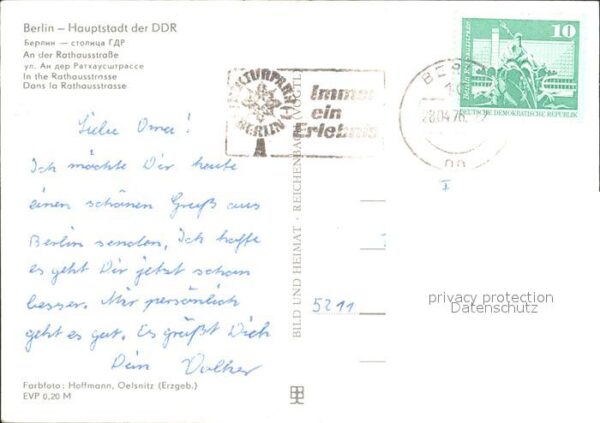 Berlin – Hauptstadt der DDR
Берлин — столица ГДР
An der Rathausstraße
ул. Ан дер Ратхаусштрассе
In the Rathausstrasse
Dans la Rathausstrasse
Liebe Oma!
Ich möchte Dir heute
einen schönen Gruß aus
Berlin senden. Ich hoffe
es geht Dir jetzt schon
besser. Mir persönlich
geht es gut. Es grüßt Dich
Dein Volker
Farbfoto: Hoffmann, Oelsnitz (Erzgeb.)
EVP 0,20 M
BILD UND HEIMAT · REICHENBACH (VOGTL
KULTURPARK
BERLIN
Immer
ein
Erlebnis
BER
20.04.76
10
DEUTSCHE DEMOKRATISCHE REPUBLIK
5211
privacy protection
Datenschutz